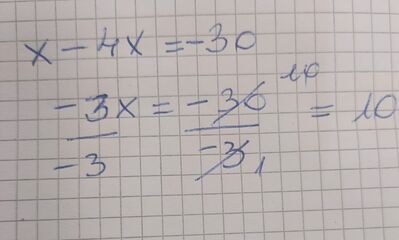 x - 4x = -30
-3x/-3 = -30/-3 10 1 = 10